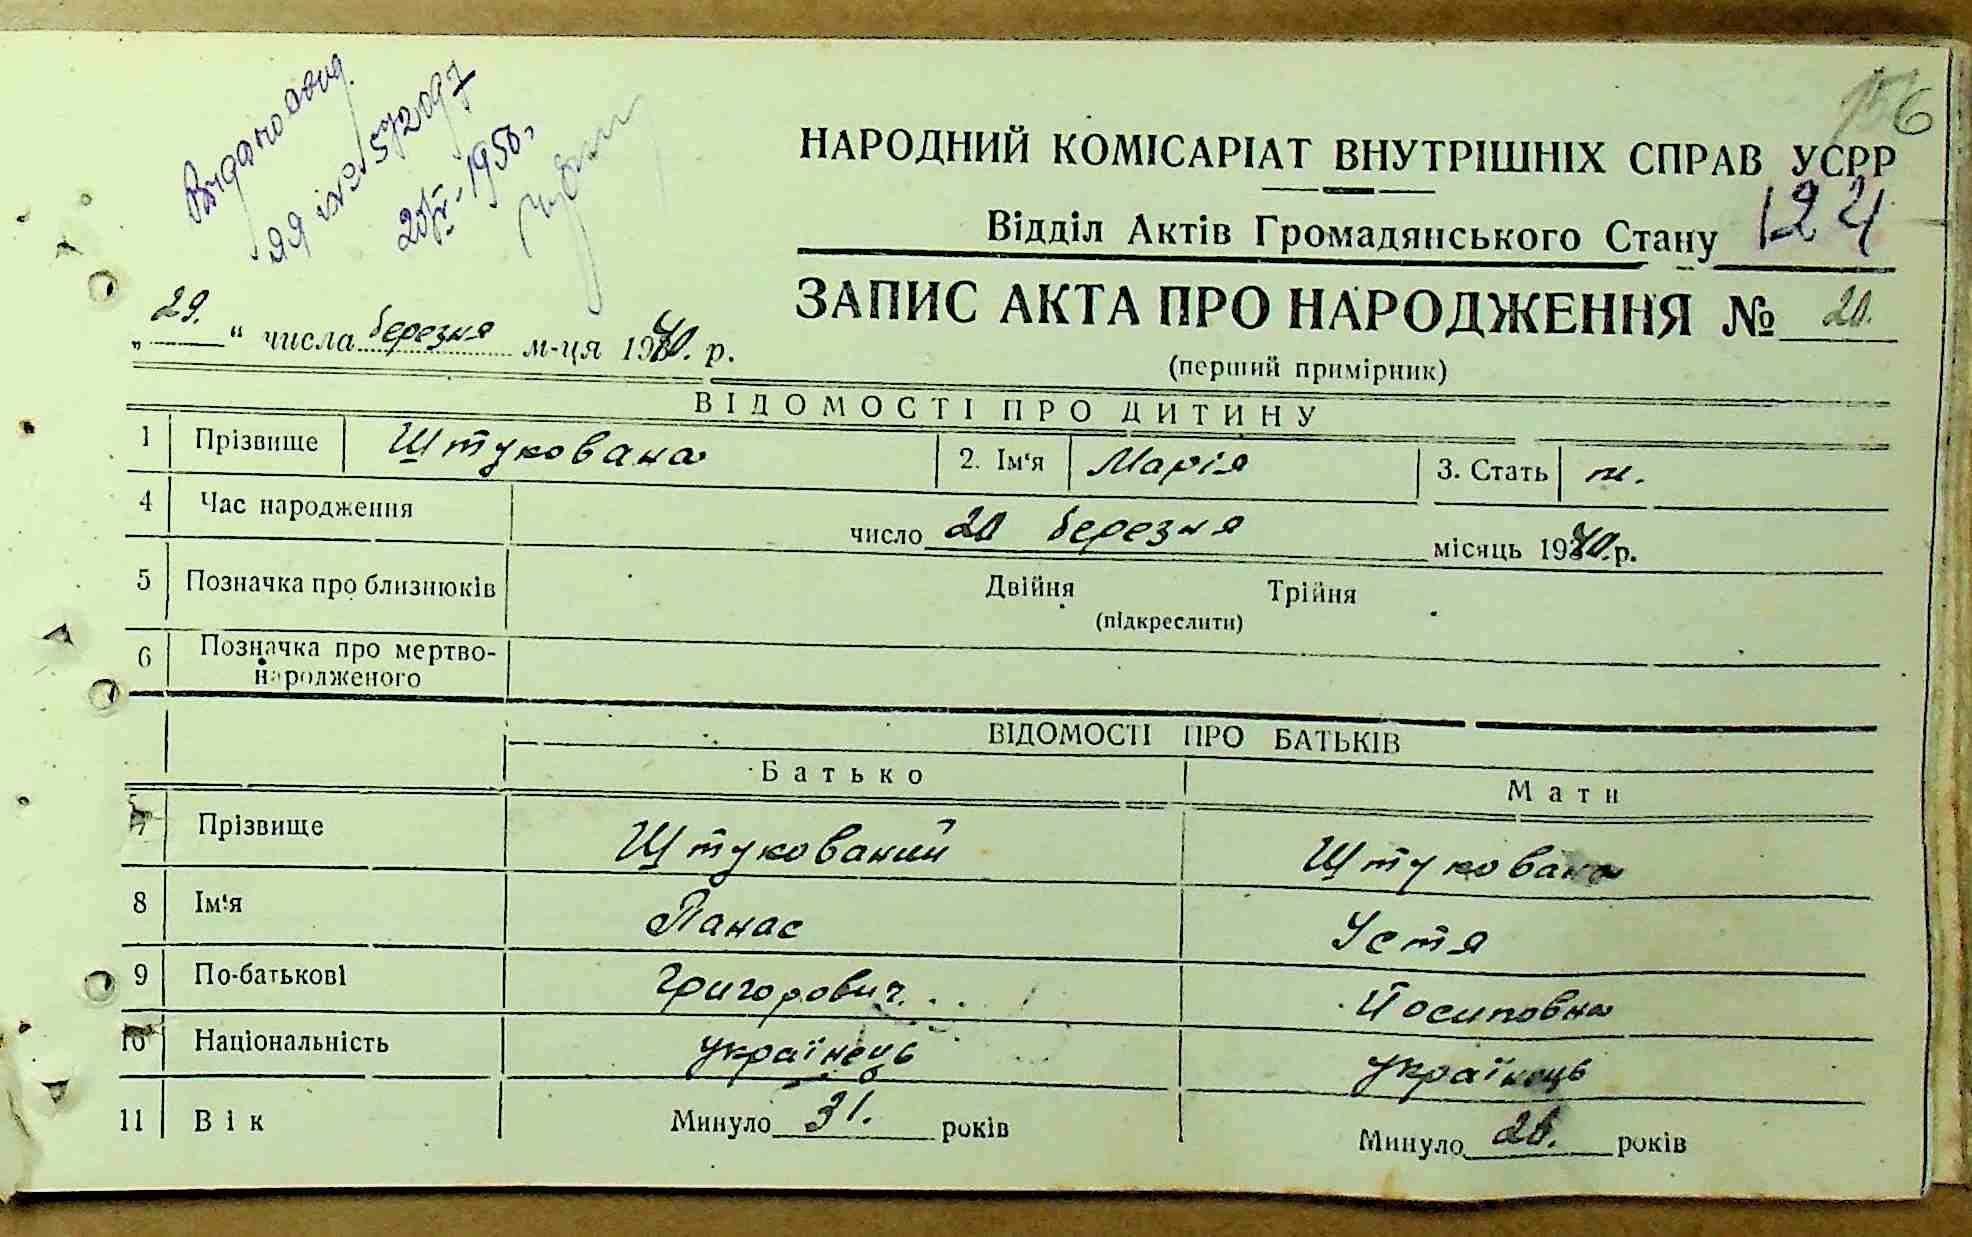 156
Видано свид.
ЯЯ № 572097
1956.
НАРОДНИЙ КОМІСАРІАТ ВНУТРІШНІХ СПРАВ УСРР
Відділ Актів Громадянського Стану 124
ЗАПИС АКТА ПРО НАРОДЖЕННЯ № 20.
(перший примірник)
„ 29. “ числа березня м-ця 1940. р.
ВІДОМОСТІ ПРО ДИТИНУ
1 Прізвище Штукована 2. Ім‘я Марія 3. Стать ж.
4 Час народження число 20 березня місяць 1940. р.
5 Позначка про близнюків Двійня Трійня
(підкреслити)
6 Позначка про мертво-
народженого
ВІДОМОСТІ ПРО БАТЬКІВ
Батько Мати
7 Прізвище Штукований Штукована
8 Ім‘я Панас Устя
9 По-батькові Григорович Йосиповна
10 Національність українець українець
11 Вік Минуло 31. років Минуло років